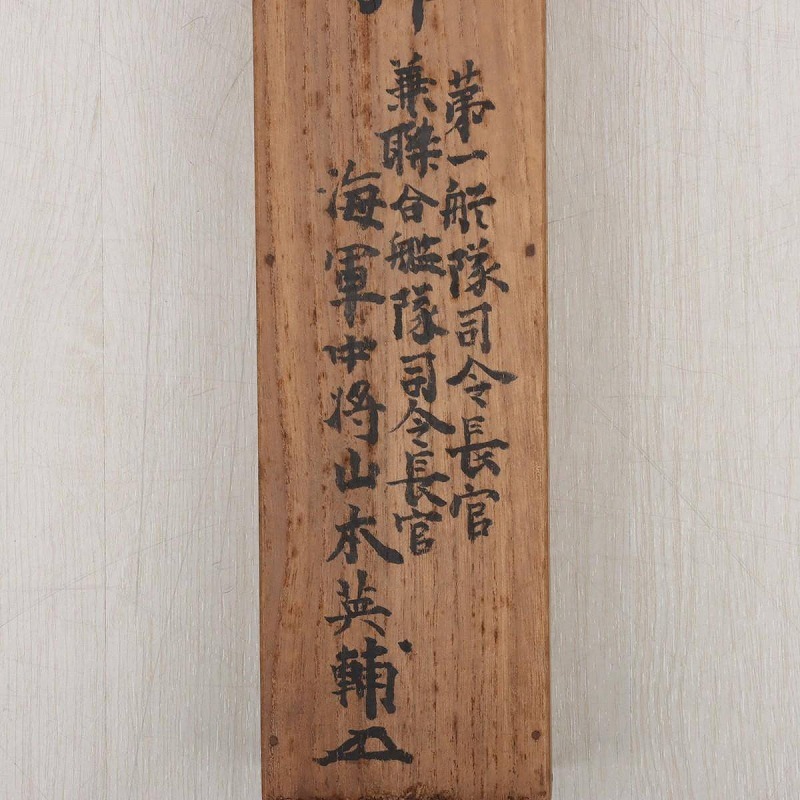 第一艦隊司令長官
兼聯合艦隊司令長官
海軍中将山本英輔